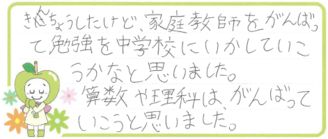 きんちょうしたけど、家庭教師をがんばっ
て勉強を中学校にいかしていこ
うかなと思いました。
算数や理科は、がんばって
いこうと思いました。